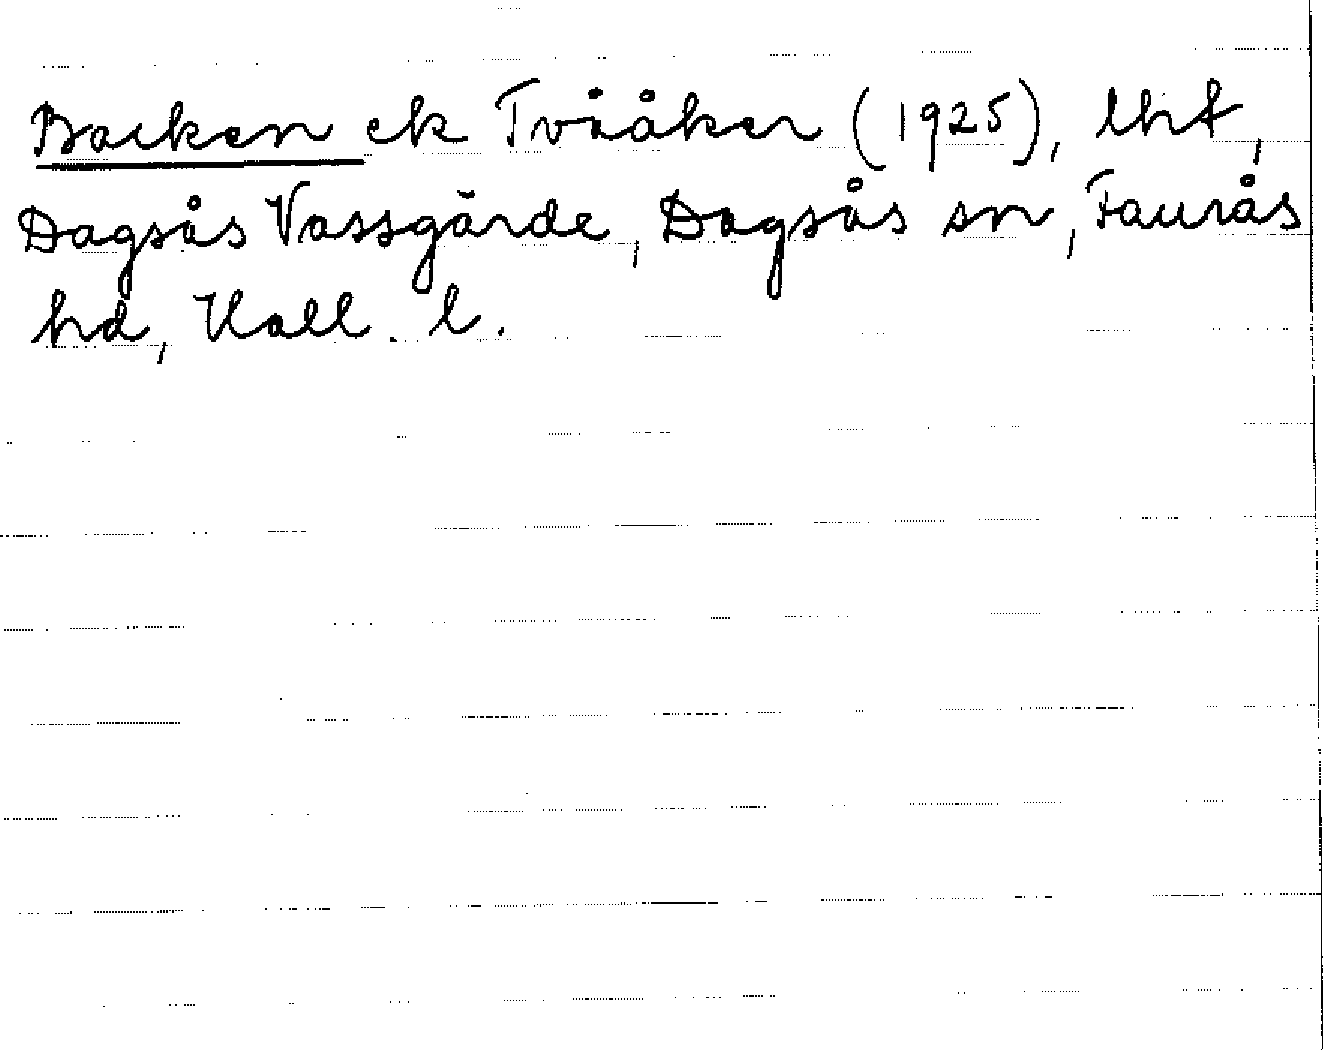 Backen ek Tvååker (1925), lht,
Dagsås Vassgärde, Dagsås sn, Faurås
hd, Hall. l.